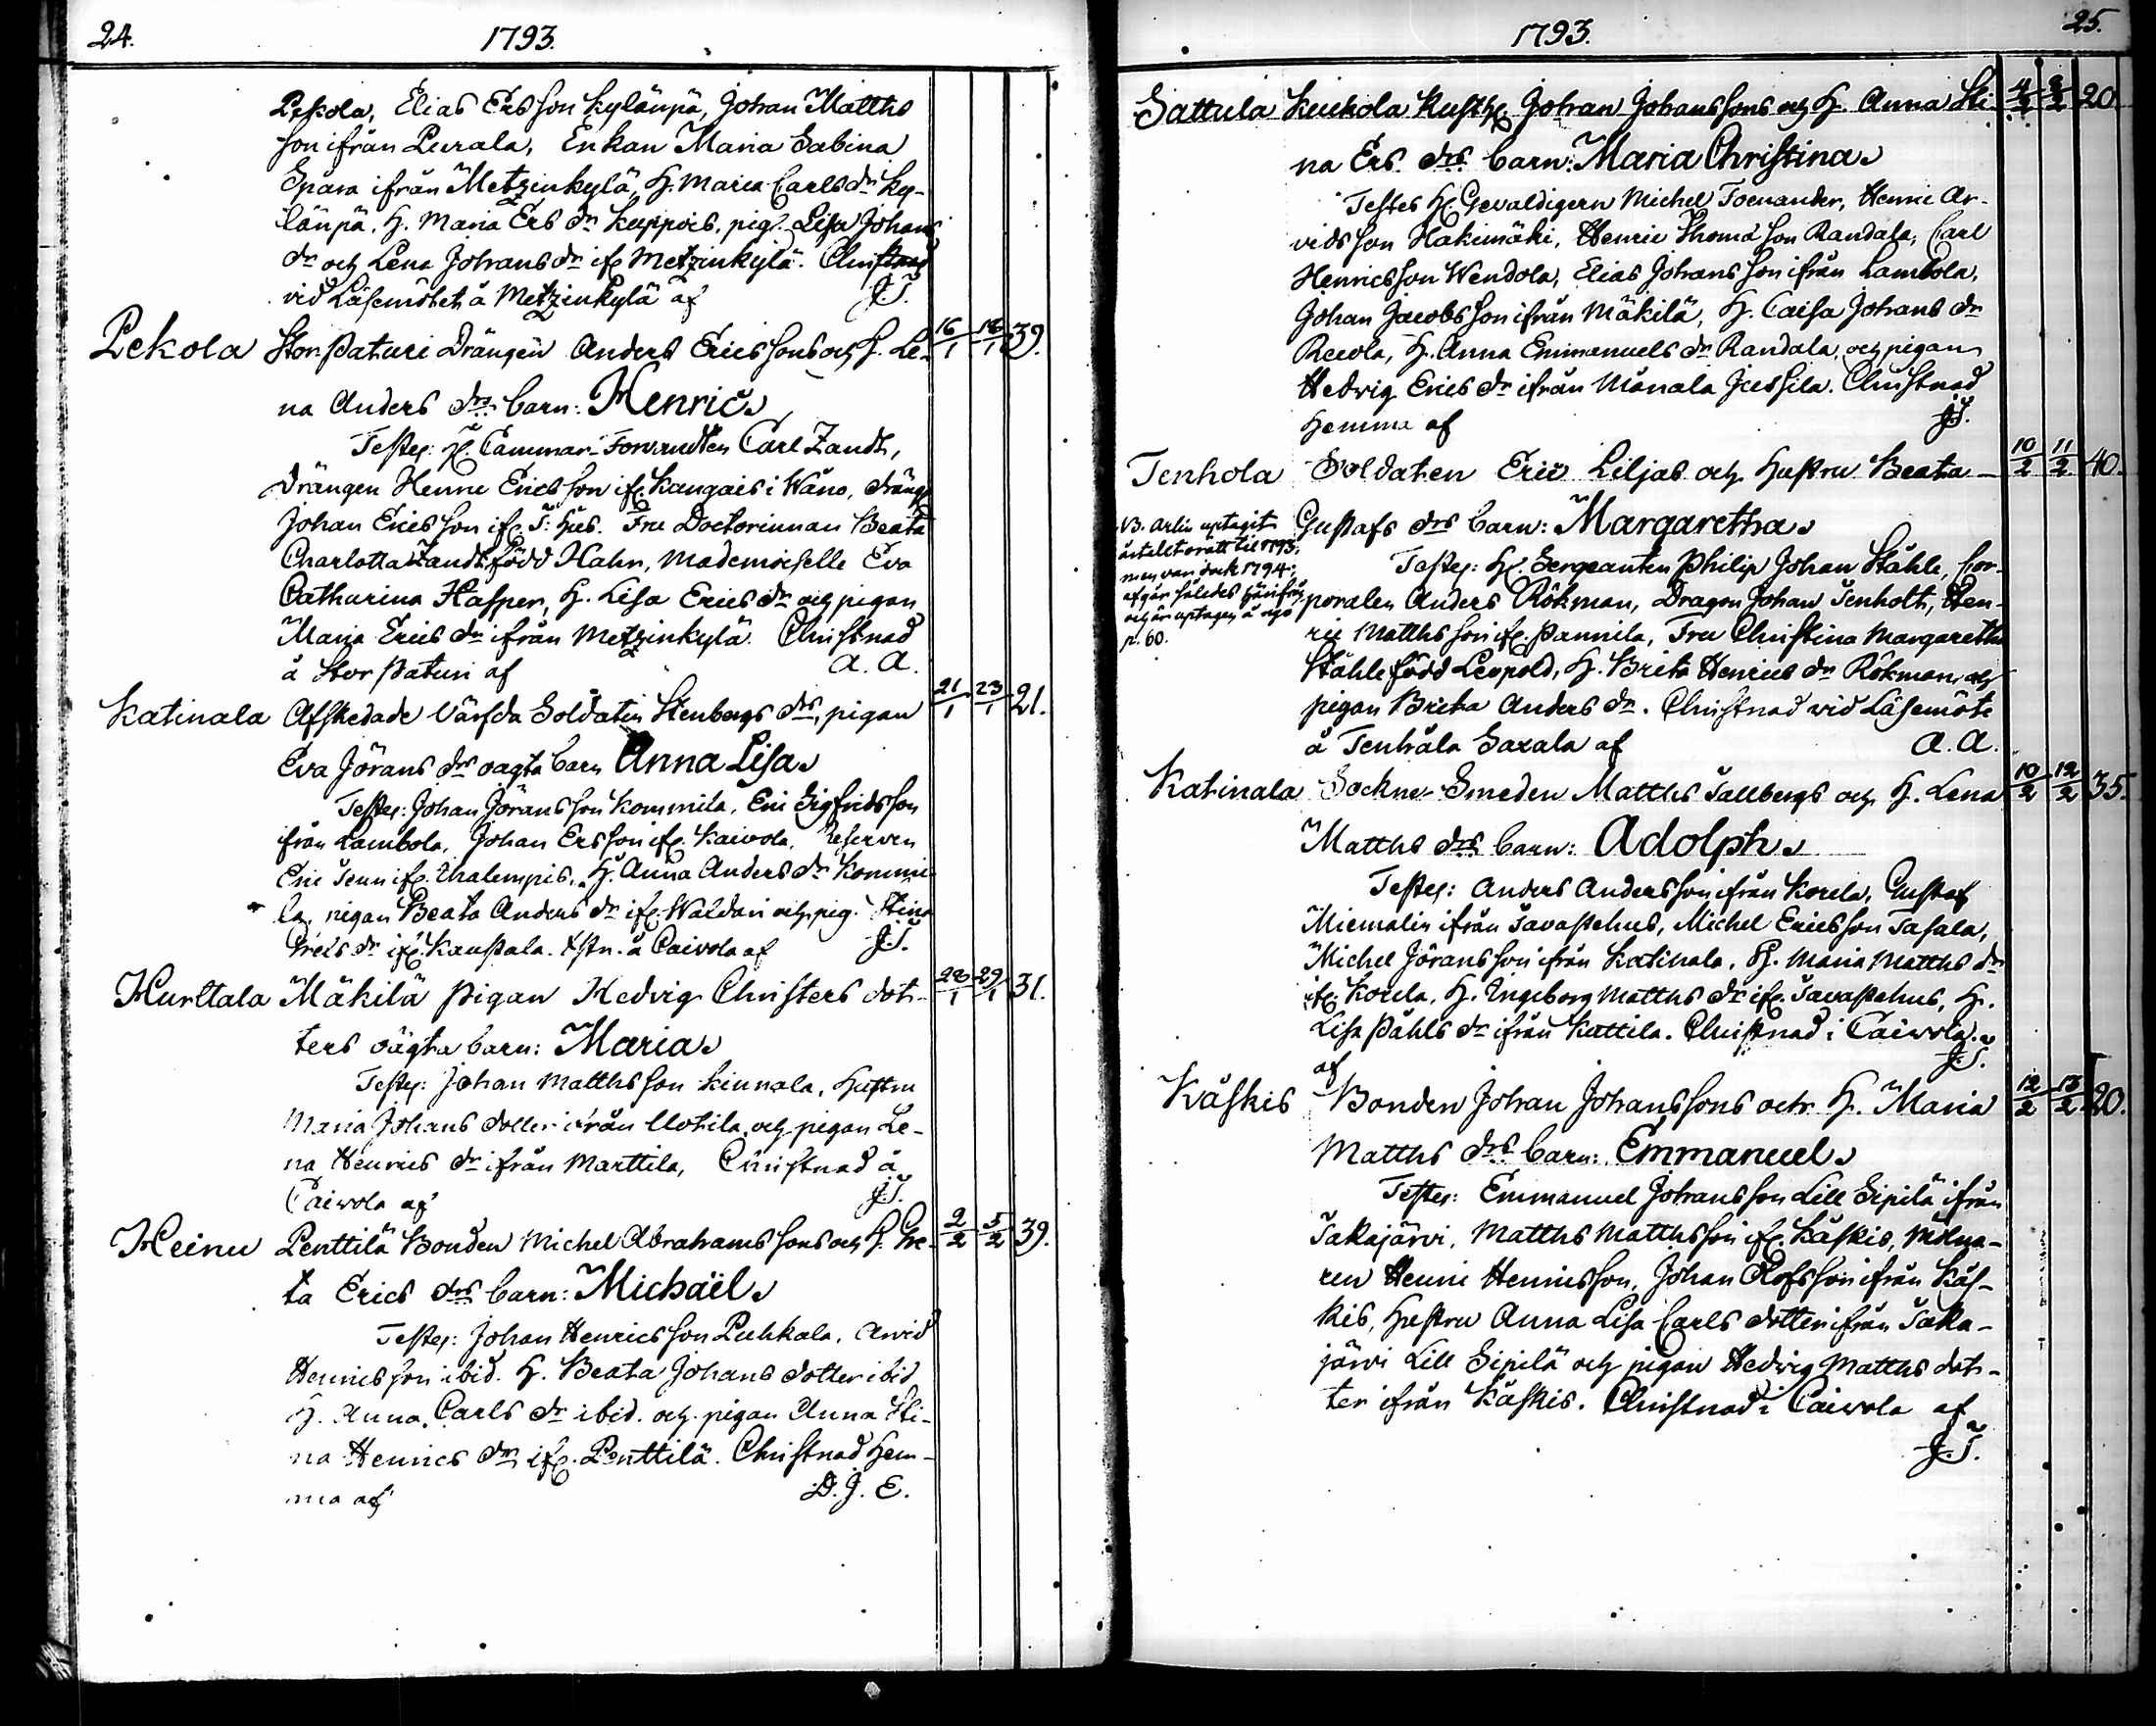 24.
1793.
Pekola, Elias Ersson Kylänpä, Johan Matths
son ifrån Peerala, Enkan Maria Sabina
Spåra ifrån Metzinkylä, H. Maria Carls dr Ky-
länpä, H. Maria Ers dr Kuppois, pig. Lisa Johans
dr och Lena Johans dr ifr. Metzinkylä. Christnad
vid Läsemötet å Metzinkylä af J.T.
Pekola Stor Paturi Drängen Anders Ericssons och H. Le- 16/1 18/1 39.
na Anders drs barn: Henric
Testes: H. Cammar-Forvandten Carl Zandt,
Drängen Henric Ericsson ifr. Kangais i Wåno, dräng
Johan Ericsson ifr. T: Hus. Fru Doctorinnan Beata
Charlotta Zandt född Hahn, Mademoiselle Eva
Catharina Hasper, H. Lisa Erics dr och pigan
Maria Erics dr ifrån Metzinkylä. Christnad
å Stor Paturi af A. A.
Katinala Afskedade Värfda Soldaten Stenbergs drs, pigan 21/1 23/1 21.
Eva Jörans drs oägta barn Anna Lisa
Testes: Johan Göransson Kommila, Eric Sigfridsson
ifrån Lambola, Johan Ersson ifr. Kaivola, Reserven
Eric Tenn ifr. Ihalempis, H. Anna Anders dr Kommi-
la, pigan Beata Anders dr ifr. Waldari och pig. Stina
Erics dr ifr. Kaustala. Xstn. å Caivola af J.T.
Hurttala Mäkilä Pigan Hedvig Christers dot- 28/1 29/1 31.
ters oägta barn: Maria
Testes: Johan Matthsson Kinnala, Hustru
Maria Johans dotter ifrån Uotila, och pigan Le-
na Henrics dr ifrån Marttila, Christnad å
Caivola af J.T.
Heinu Penttilä Bonden Michel Abrahamssons och H. Gre- 2/2 5/2 39.
ta Erics drs barn: Michaël
Testes: Johan Henricsson Puhkala, Arvid
Henricsson ibid. H. Beata Johans dotter ibid
H. Anna Carls dr ibid. och pigan Anna Sti-
na Henrics dr, ifr. Penttilä. Christnad hem-
ma af D. J. E.
1793.
25.
Sattula Keickola Rusth. Johan Johanssons och H. Anna Sti- 4/2 8/2 20.
na Ers drs barn: Maria Christina
Testes H. Gevaldigern Michel Toenander, Henric Ar-
vidsson Hakimäki, Henric Thomasson Randala, Carl
Henricsson Wendola, Elias Johansson ifrån Lambola,
Johan Jacobsson ifrån Mäkilä, H. Caisa Johans dr
Rewola, H. Anna Emmanuels dr Randala, och pigan
Hedwig Erics dr ifrån Månala Jussila. Christnad
hemma af J.T.
Tenhola Soldaten Eric Liljas och Hustru Beata 10/2 11/2 40.
Gustafs drs barn: Margaretha
NB. uptagit
orätt til 1793,
men van dock 1794:
afgår således härifrån
och är uptagen å nyo
p. 60.
Testes: H. Sergeanten Philip Johan Ståhle, Cor-
poralen Anders Rökman, Dragon Johan Tenholt, Hen-
ric Matthsson ifr. Pannila, Fru Christina Margaretha
Ståhle född Leopold, H. Brita Henrics dr Rökman, och
pigan Brita Anders dr. Christnad vid Läsemöte
å Tenhåla Saxala af A. A.
Katinala Sockne-Smeden Matths Tallbergs och H. Lena 10/2 12/2 35.
Matths drs barn: Adolph
Testes: Anders Andersson ifrån Korela, Gustaf
Miemalin ifrån Tavastehus, Michel Ericsson Tasala,
Michel Jöransson ifrån Katinala, H. Maria Matths dr
ifr. Korela, H. Ingeborg Matths dr ifr. Tavastehus, H.
Lisa Påhls dr ifrån Kattila. Christnad i Caiwola
af J.T.
Kåskis Bonden Johan Johanssons och H. Maria 12/2 13/2 20.
Matths drs barn: Emmanuel
Testes: Emmanuel Johansson Lill Sipilä ifrån
Takajärvi, Matths Matthsson ifr. Kåskis, Mölna-
ren Henric Henricsson, Johan Olofsson ifrån Kås-
kis, Hustru Anna Lisa Carls dotter ifrån Taka-
järvi Lill Sipilä och pigan Hedwig Matths dot-
ter ifrån Kåskis. Christnad i Caiwola af
J.T.